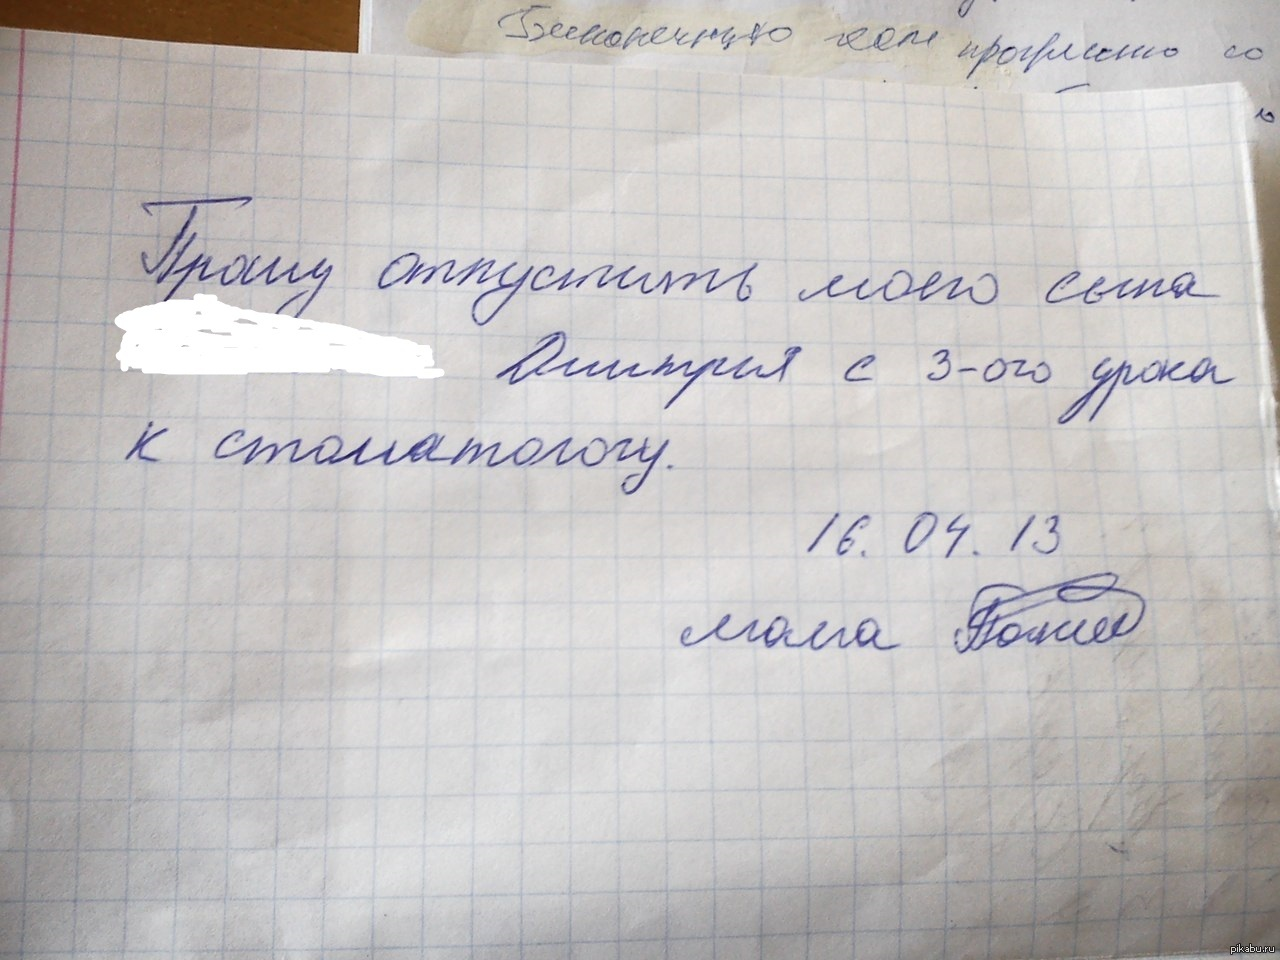 прогрессию со
Прошу отпустить моего сына
Дмитрия с 3-ого урока
к стоматологу.
16.04.13
мама
pikabu.ru